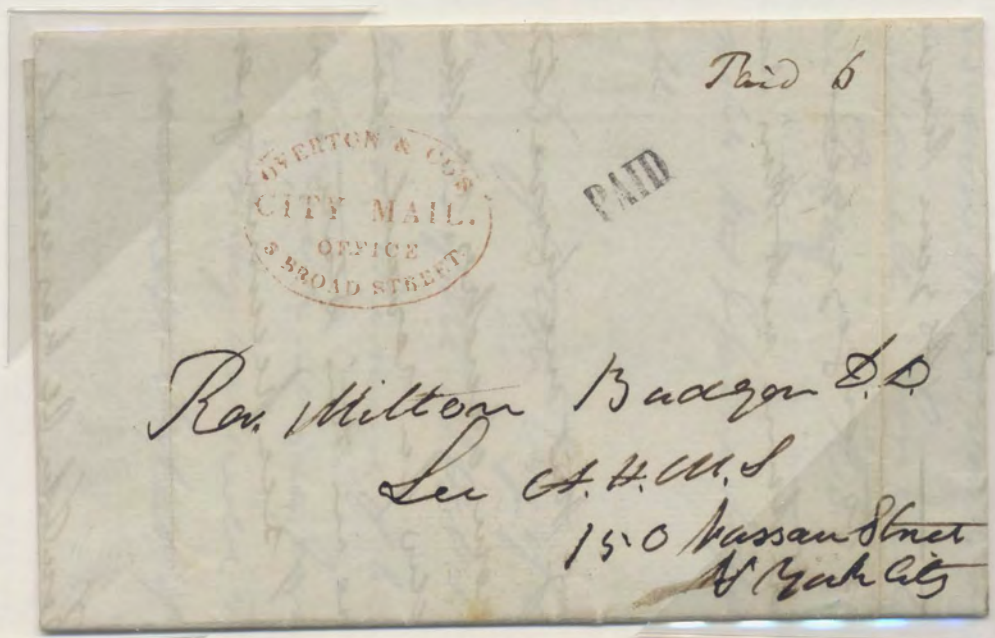 Paid 6
OVERTON & CO'S
CITY MAIL.
OFFICE
3 BROAD STREET.
PAID
Rev. Milton Badger D.D.
Sec A.H.M.S
150 Nassau Street
N York City